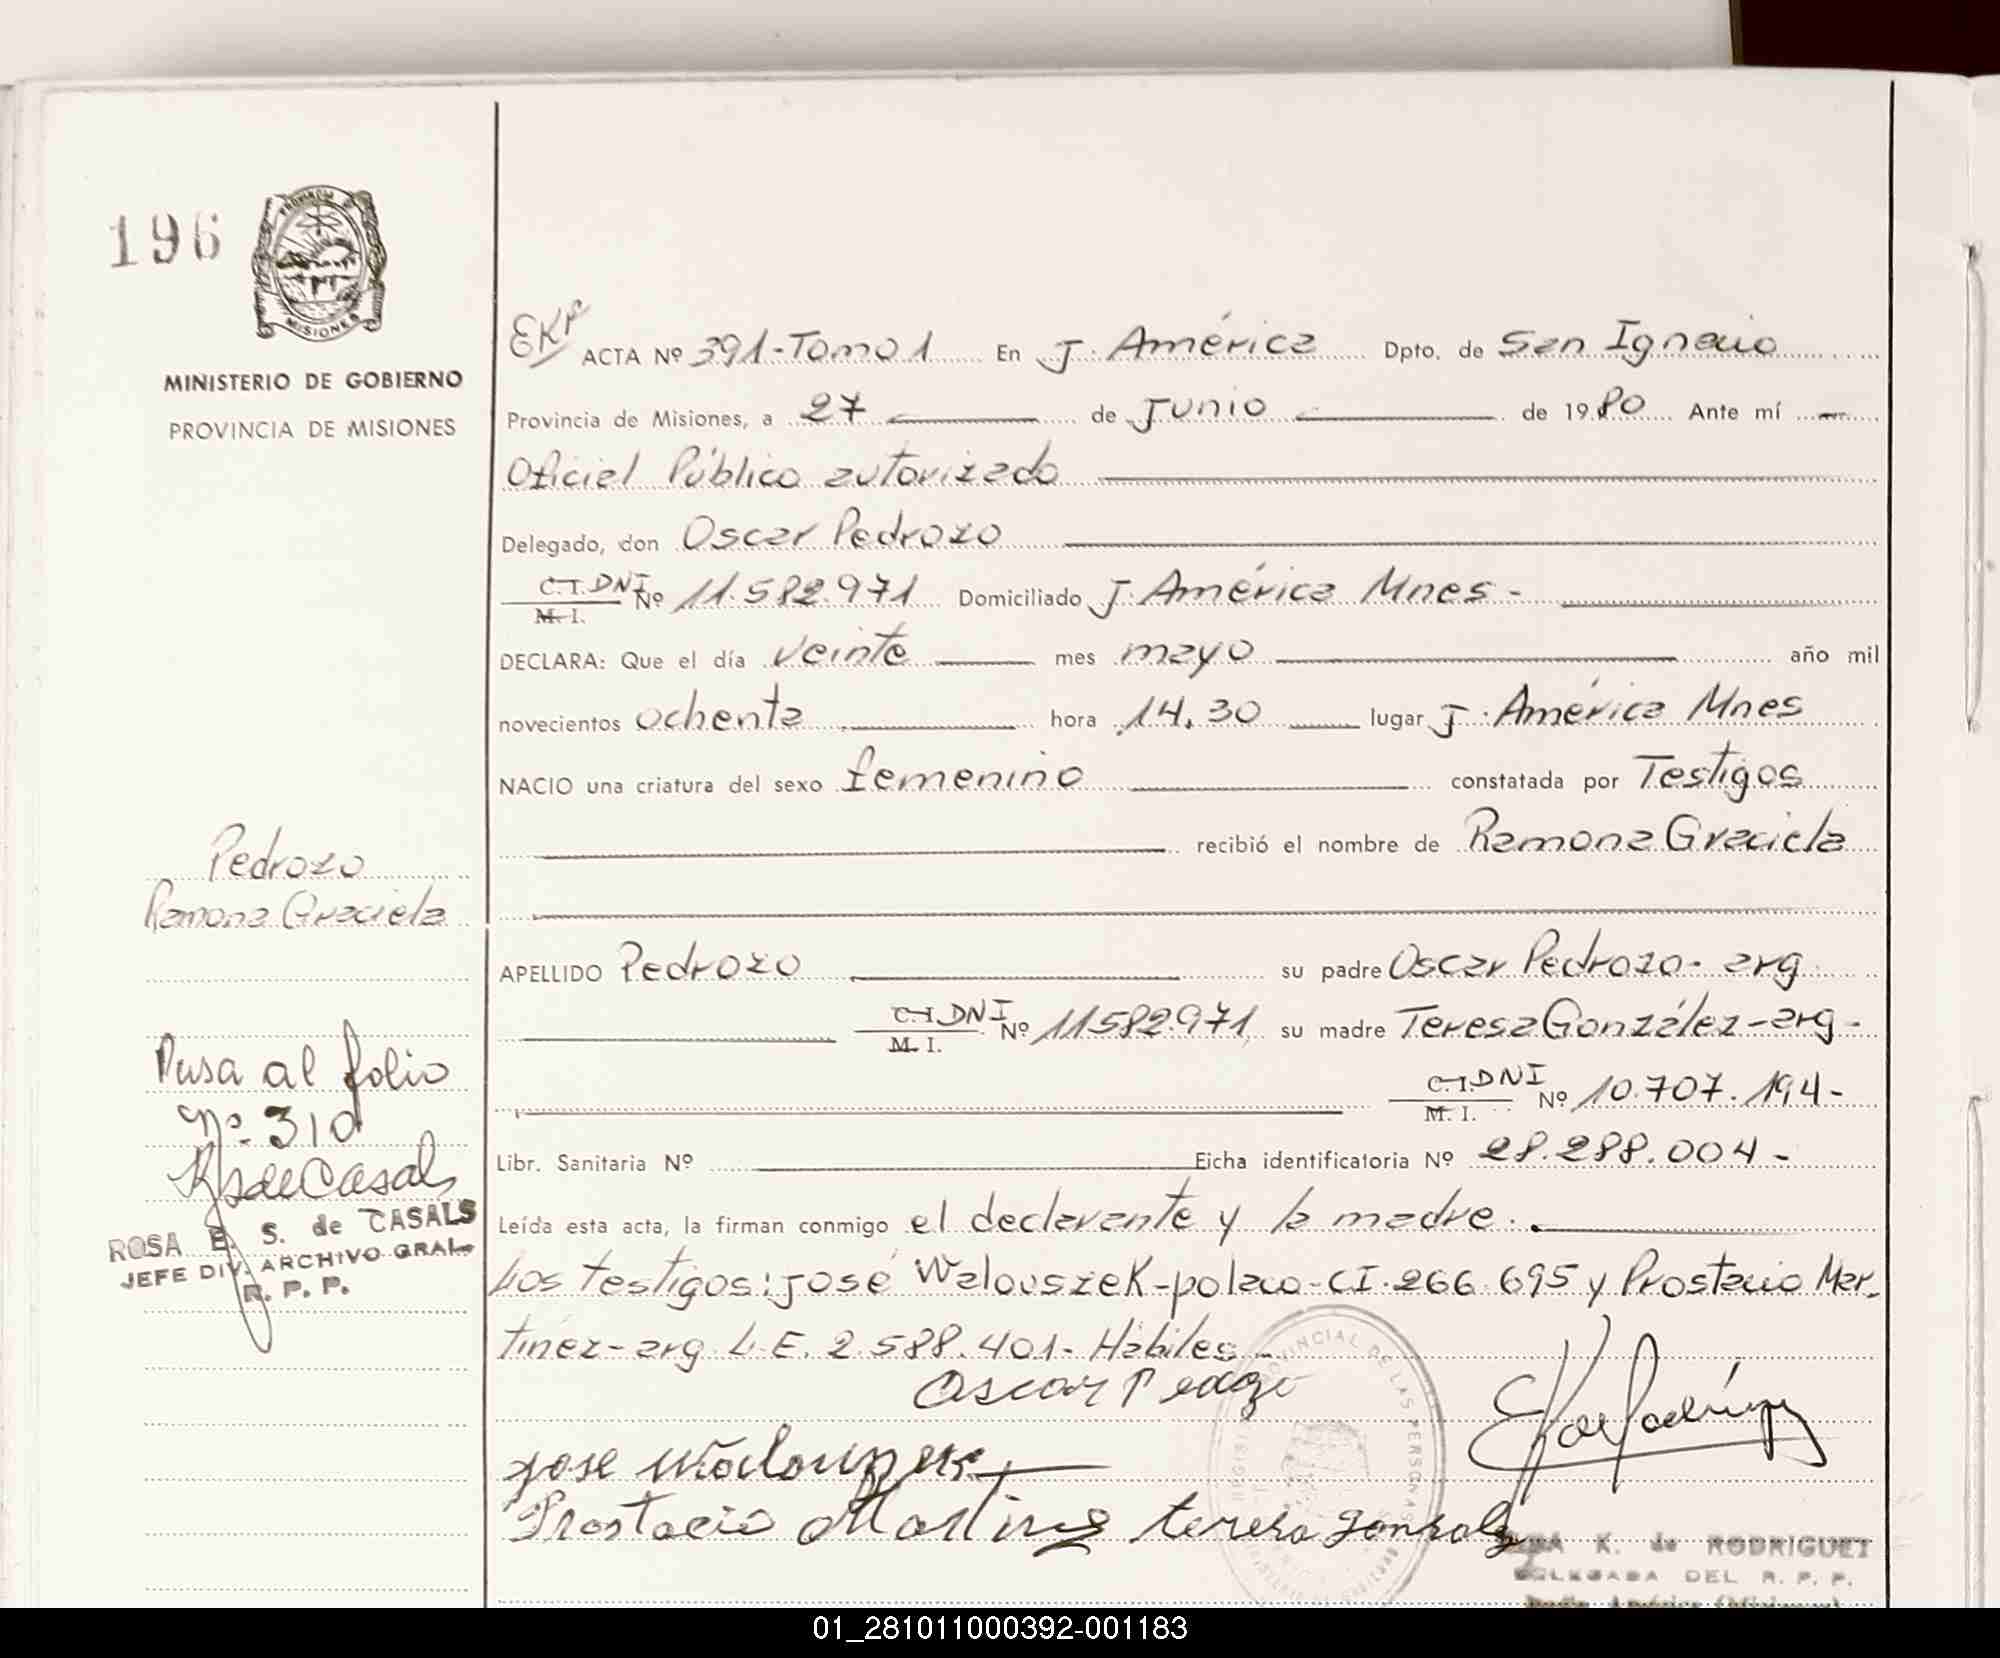 196
PROVINCIA DE
MISIONES
MINISTERIO DE GOBIERNO
PROVINCIA DE MISIONES
Pedrozo
Ramona Graciela
Pasa al folio
Nº 310
RSdeCasals
ROSA E. S. de CASALS
JEFE DIV. ARCHIVO GRAL.
R. P. P.
ACTA Nº 391-Tomo 1 En J. América Dpto. de San Ignacio
Provincia de Misiones, a 27 de Junio de 1980 Ante mí
Oficial Público autorizado
Delegado, don Oscar Pedrozo
C.I. DNI M. I. Nº 11.582.971 Domiciliado J. América Mnes -
DECLARA: Que el día veinte mes mayo año mil
novecientos ochenta hora 14.30 lugar J. América Mnes
NACIO una criatura del sexo femenino constatada por Testigos
recibió el nombre de Ramona Graciela
APELLIDO Pedrozo su padre Oscar Pedrozo- arg
C.I. DNI M. I. Nº 11582.971, su madre Teresa González-arg-
C.I. DNI M. I. Nº 10.707.194-
Libr. Sanitaria Nº Ficha identificatoria Nº 28.288.004-
Leída esta acta, la firman conmigo el declarante y la madre.
Los testigos: José Walouszek-polaco-CI.266.695 y Prostacio Mar-
tínez-arg L.E. 2.588.401- Hábiles
Oscar
Jose
Prostacio Martinez teresa gonzalez
K. de RODRIGUEZ
DELEGADA DEL R. P. P.
01_281011000392-001183